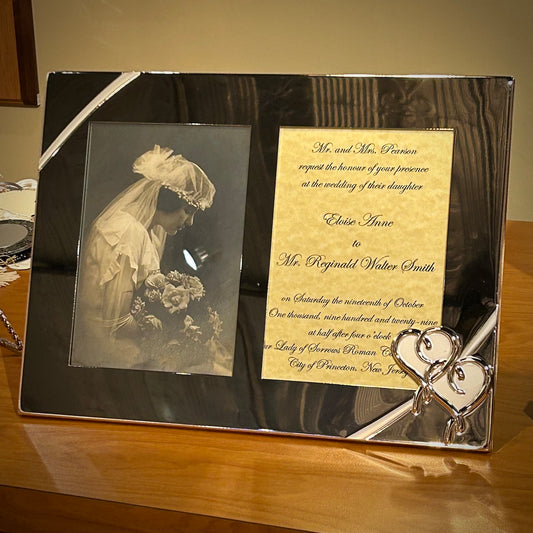 Mr. and Mrs. Pearson
request the honour of your presence
at the wedding of their daughter
Eloise Anne
to
Mr. Reginald Walter Smith
on Saturday the nineteenth of October
One thousand, nine hundred and twenty-nine
at half after four o'clock
Lady of Sorrows Roman
City of Princeton, New Jersey